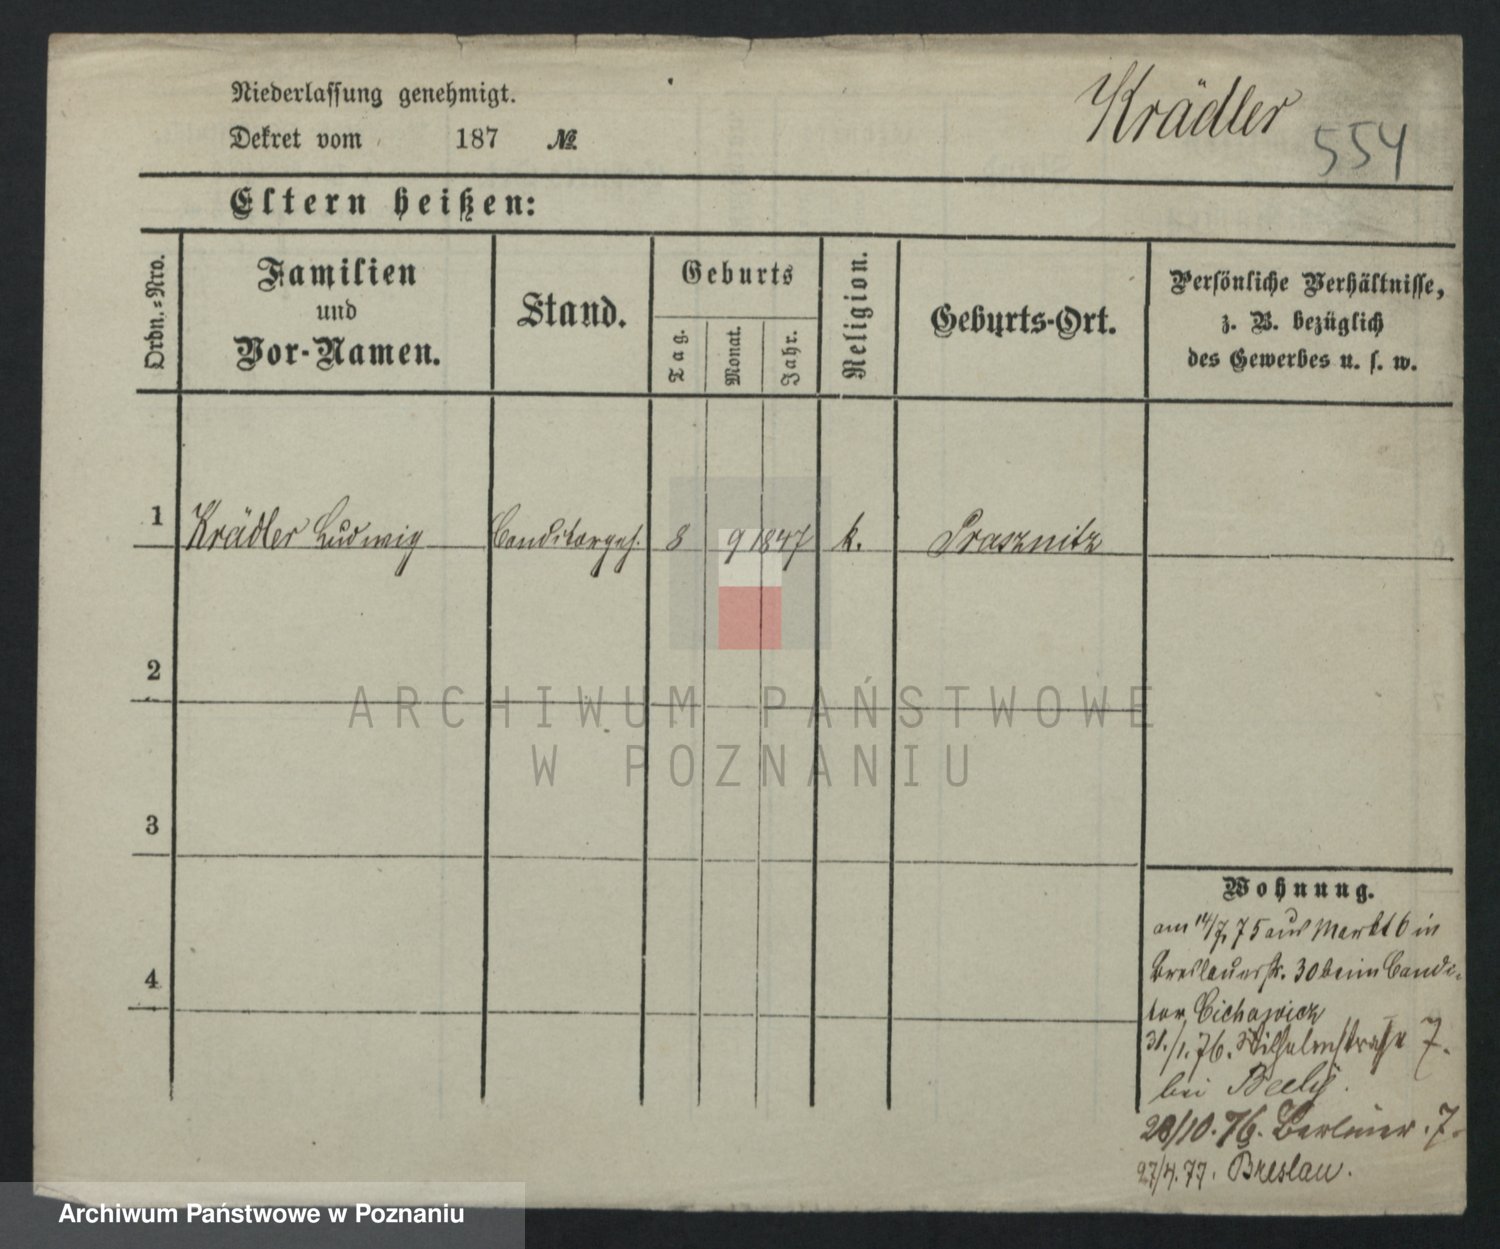 Niederlassung genehmigt.
Krädler
Dekret vom 187 №
554
Eltern heißen:
Ordn.-Nro.
Familien
und
Vor-Namen.
Stand.
Geburts
Tag.
Monat.
Jahr.
Religion.
Geburts-Ort.
Persönliche Verhältnisse,
z. B. bezüglich
des Gewerbes u. s. w.
1 Krädler Ludwig Conditorgeh. 8 9 1847 k. Prasznitz
2
ARCHIWUM PAŃSTWOWE
W POZNANIU
3
Wohnung.
am 14/7. 75 aus Markt 6 in
Breslauerstr. 30 beim Condi-
tor Cichowicz
4
31./1. 76. Wilhelmstraße 7.
bei Beely.
28/10. 76. Berliner. 7.
27/4. 77. Breslau.
Archiwum Państwowe w Poznaniu